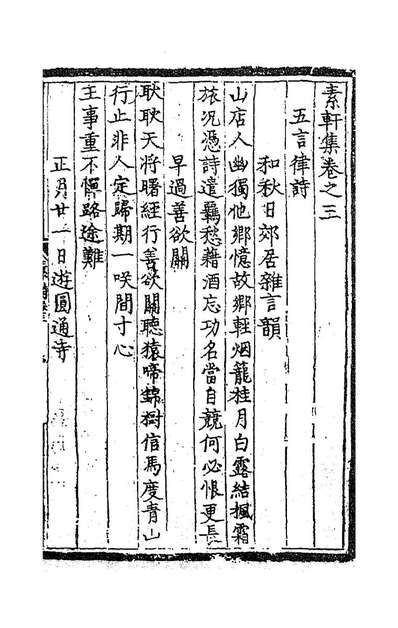 素軒集卷之三
五言律詩
和秋日郊居雜言韻
山店人幽獨他鄉憶故鄉輕烟籠桂月白露結楓霜
旅況憑詩遣羈愁藉酒忘功名當自競何必悵更長
早過善欲關
耿耿天將曙經行善欲關聽猿啼錦樹信馬度青山
行止非人定歸期一咲間寸心
王事重不憚路途難
正月廿一日遊圓通寺